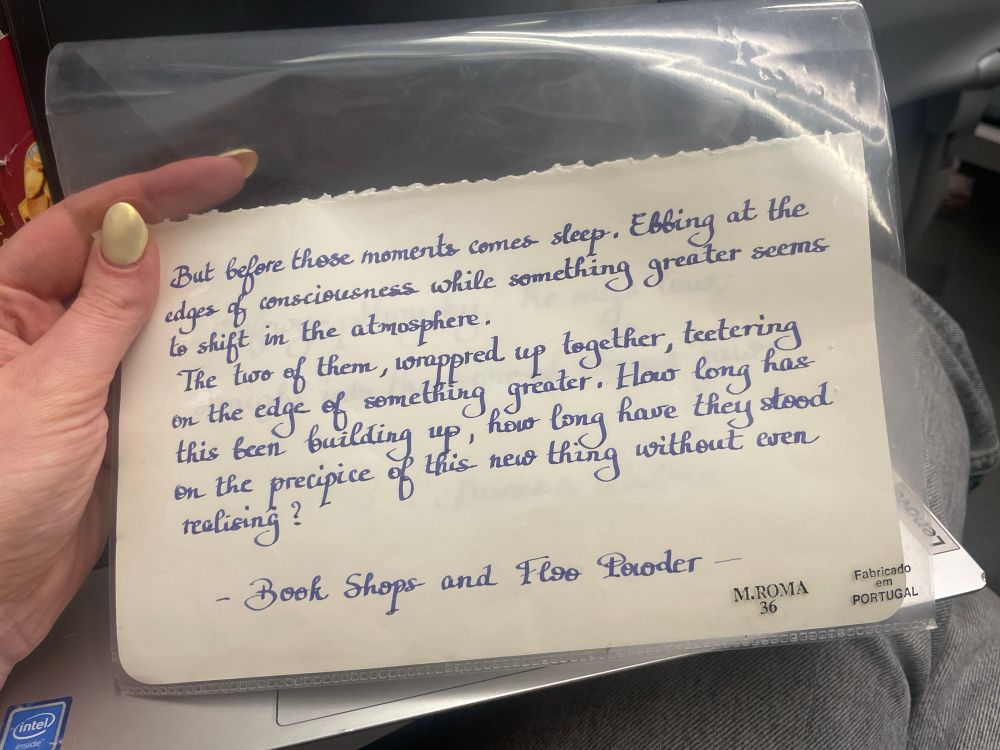 But before those moments comes sleep. Ebbing at the
edges of consciousness while something greater seems
to shift in the atmosphere.
The two of them, wrappred up together, teetering
on the edge of something greater. How long has
this been building up, how long have they stood
on the precipice of this new thing without even
realising?
- Book Shops and Floo Powder -
M.ROMA
36
Fabricado
em
PORTUGAL
Lenovo
intel
inside